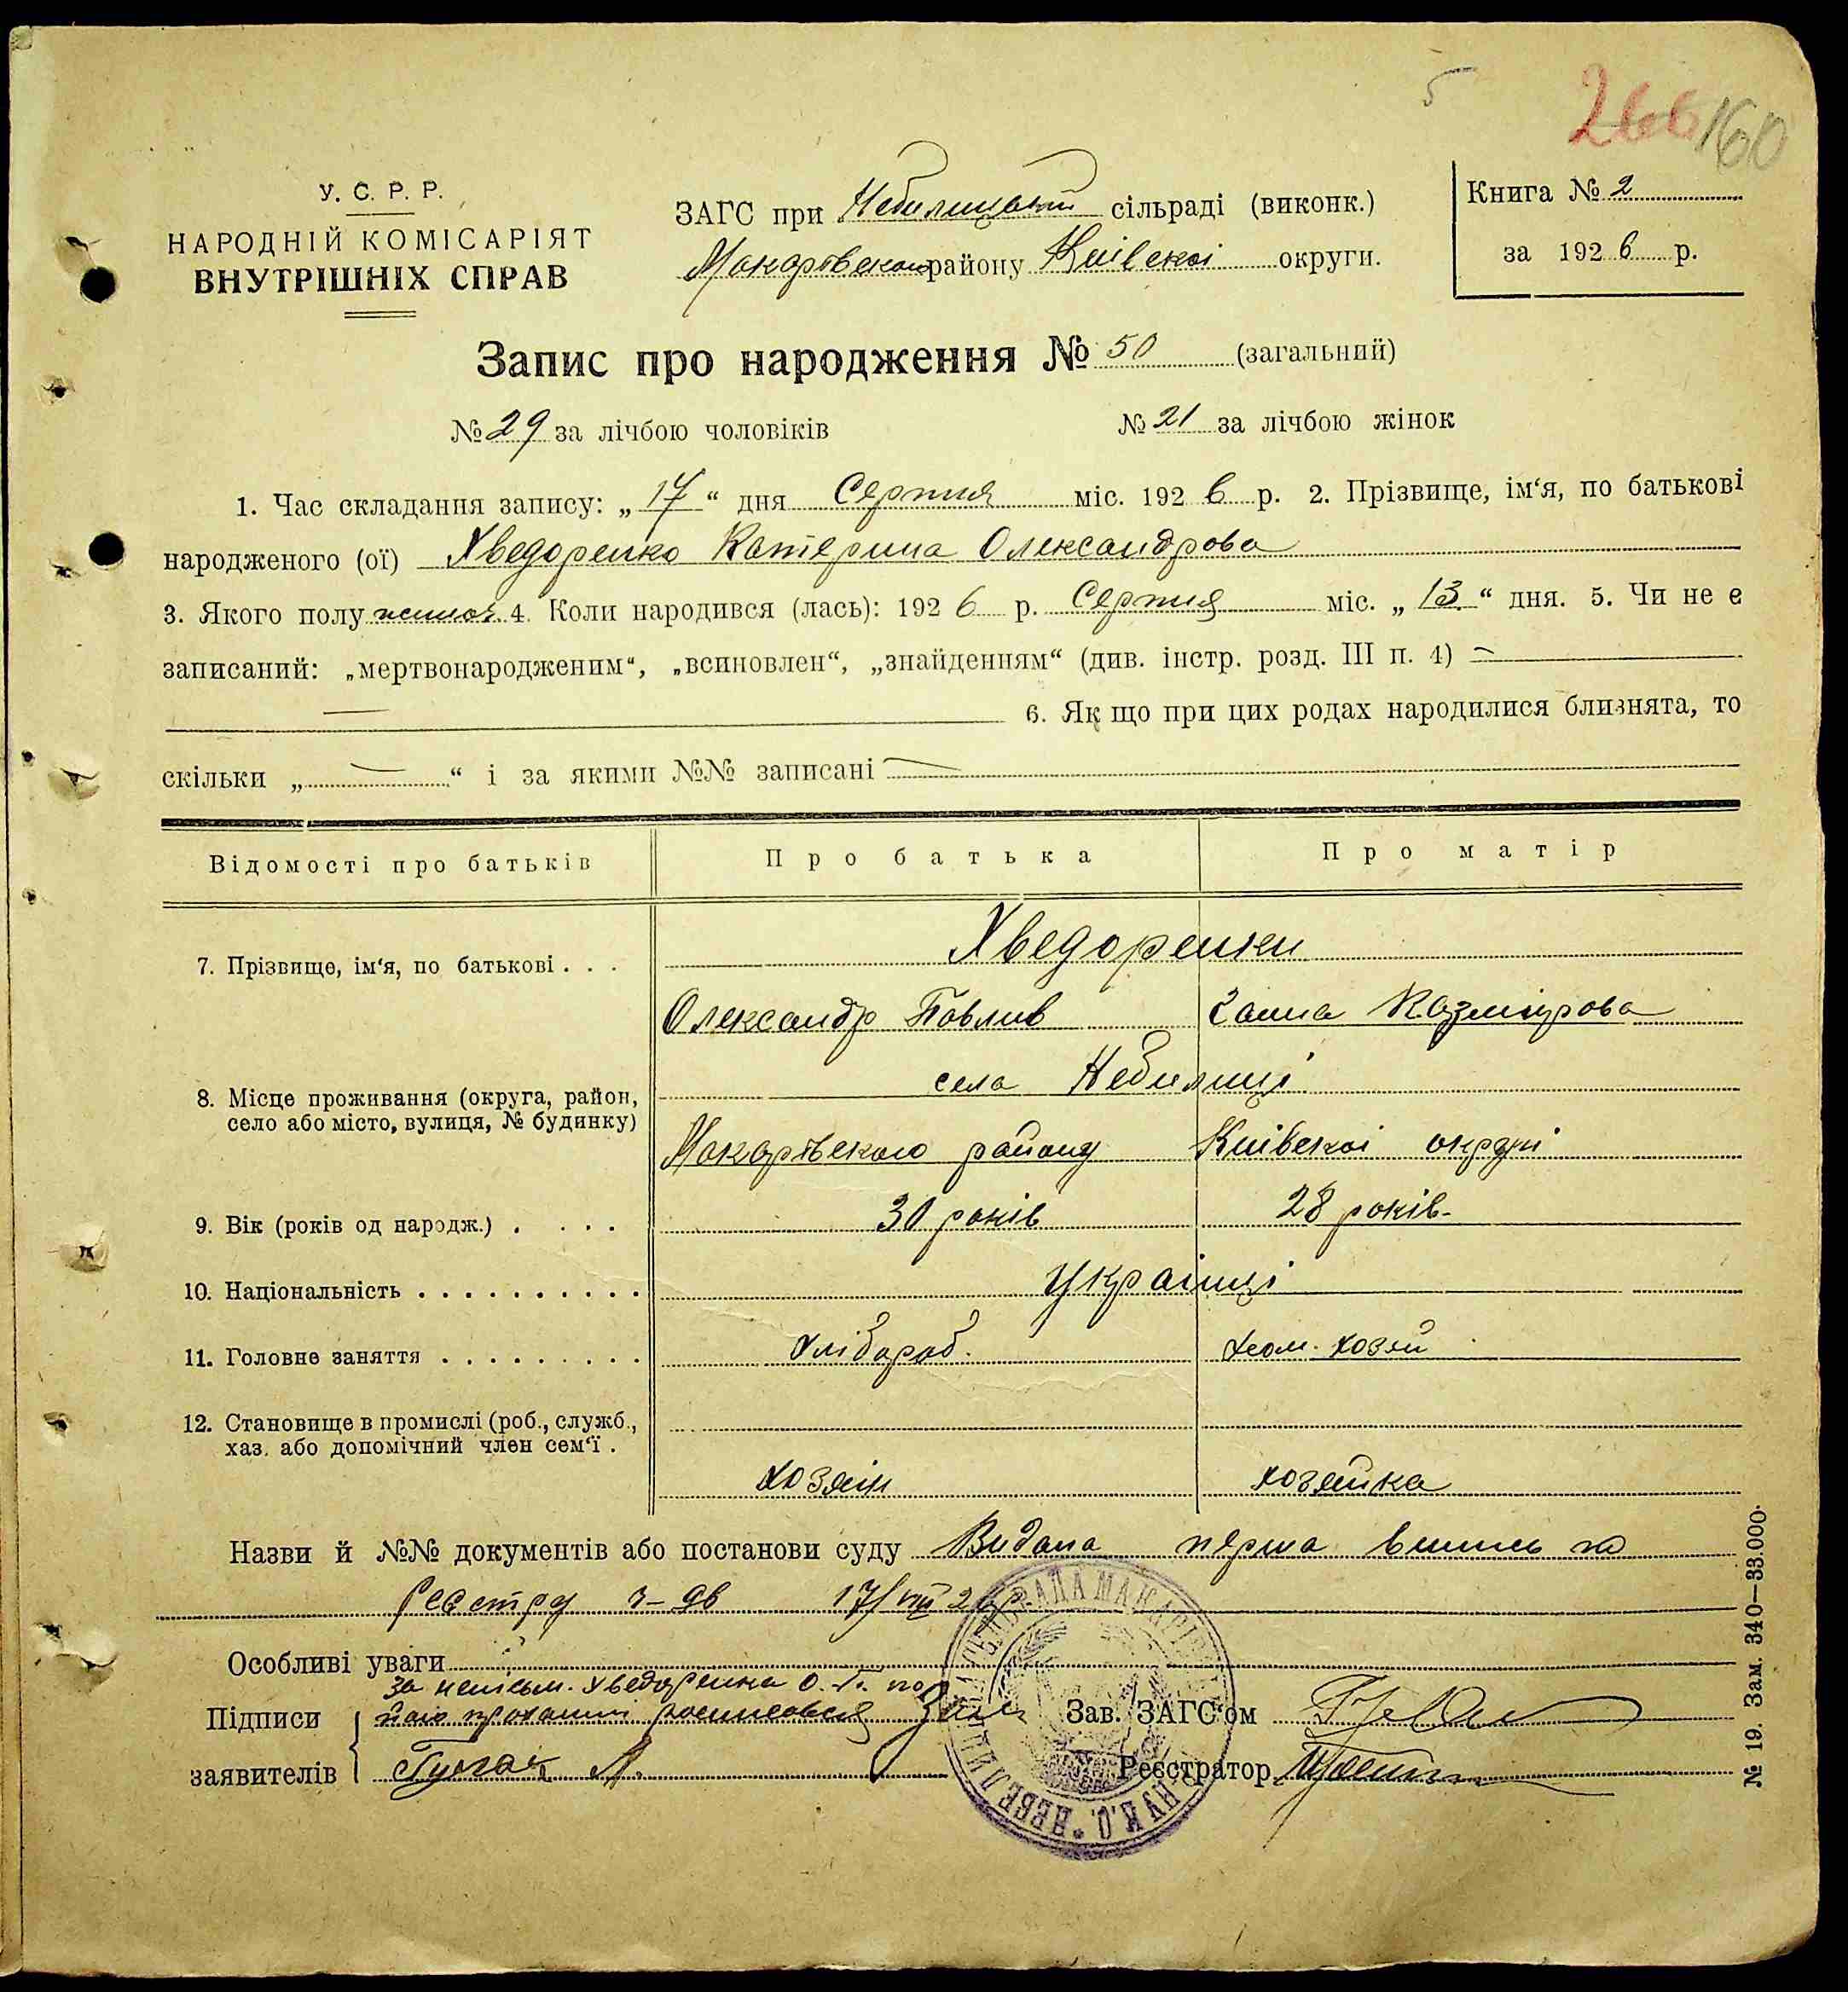 5
266 160
У. С. Р. Р.
НАРОДНІЙ КОМІСАРІЯТ
ВНУТРІШНІХ СПРАВ
ЗАГС при Небилицькій сільраді (виконк.)
Макарівського району Київскоі округи.
Книга № 2
за 1926 р.
Запис про народження № 50 (загальний)
№ 29 за лічбою чоловіків № 21 за лічбою жінок
1. Час складання запису: „17“ дня Серпня міс. 1926 р. 2. Прізвище, ім‘я, по батькові
народженого (ої) Хведоренко Катерина Олександрова
3. Якого полу жіноч. 4. Коли народився (лась): 1926 р. Серпня міс. „13“ дня. 5. Чи не є
записаний: „мертвонародженим“, „всиновлен“, „знайденням“ (див. інстр. розд. III п. 4) —
— 6. Як що при цих родах народилися близнята, то
скільки „ — “ і за якими №№ записані —
Відомості про батьків Про батька Про матір
7. Прізвище, ім‘я, по батькові . . . Хведоренки
Олександр Павлів Ганна Казмірова
села Небилиці
8. Місце проживання (округа, район,
село або місто, вулиця, № будинку)
Макарівського району Київскоі округи
9. Вік (років од народж.) . . . . 30 років 28 років
10. Національність . . . . . . . . . . Украінці
11. Головне заняття . . . . . . . . . хлібороб. дом. хозяй
12. Становище в промислі (роб., служб.,
хаз. або допомічний член сем‘ї .
хозяїн хозяйка
Назви й №№ документів або постанови суду Видана перша випись по
реєстру 17/VIII 26 р.
Особливі уваги
за неписьм. Хведоренка О. П. по
Підписи його проханню росписався
заявителів
Зав. ЗАГС‘ом
Реєстратор
№ 19. Зам. 340—33.000.